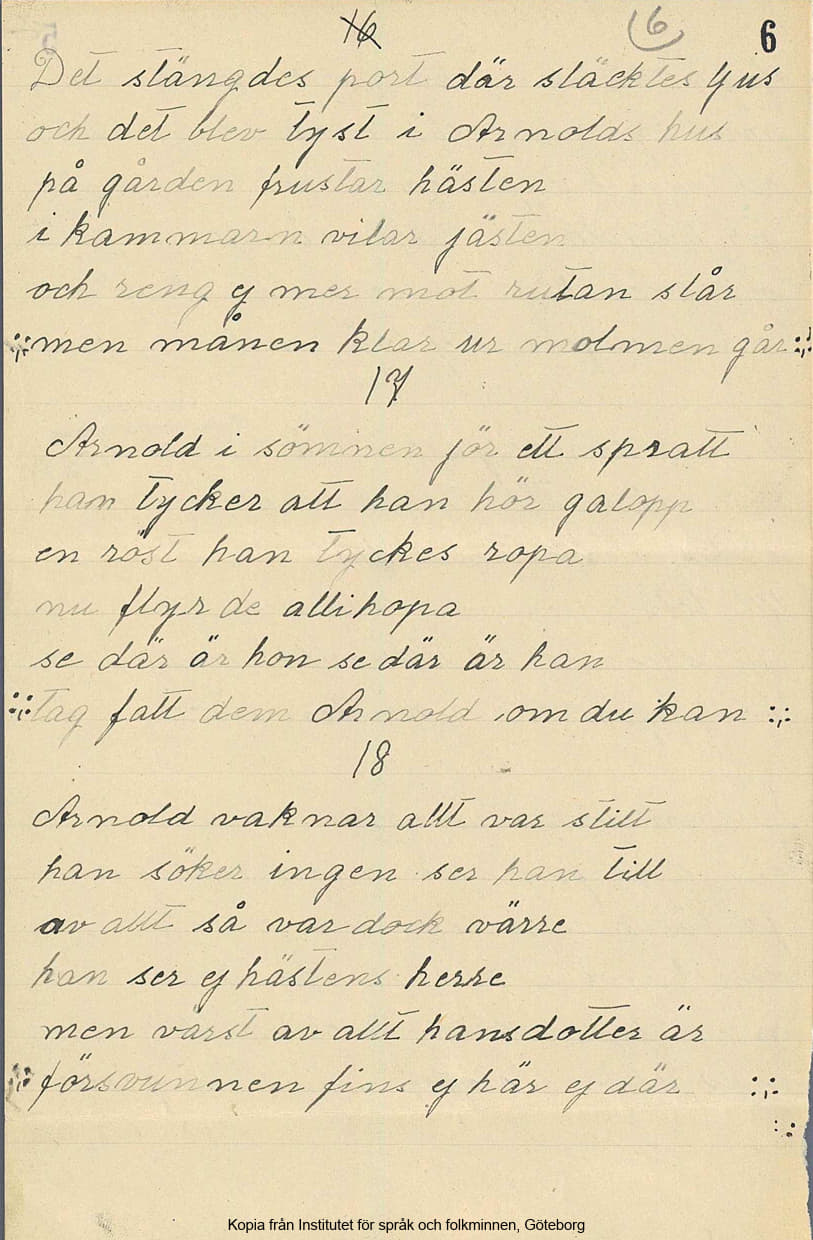 16 6 6
Det stängdes port där släcktes ljus
och det blev tyst i Arnolds hus
på gården frustar hästen
i kammarn vilar jästen
och reng ej mer mot rutan slår
:;: men månen klar ur molmen går :;:
17
Arnold i sömnen jör ett spratt
han tycker att han hör galopp
en röst han tyckes ropa
nu flyr de allihopa
se där är hon se där är han
:;: tag fatt dem Arnold om du kan :;:
18
Arnold vaknar allt var stilt
han söker ingen ser han till
av allt så var dock värre
han ser ej hästens herre
men värst av allt hans dotter är
:;: försvunnen fins ej här ej där :;:
Kopia från Institutet för språk och folkminnen, Göteborg